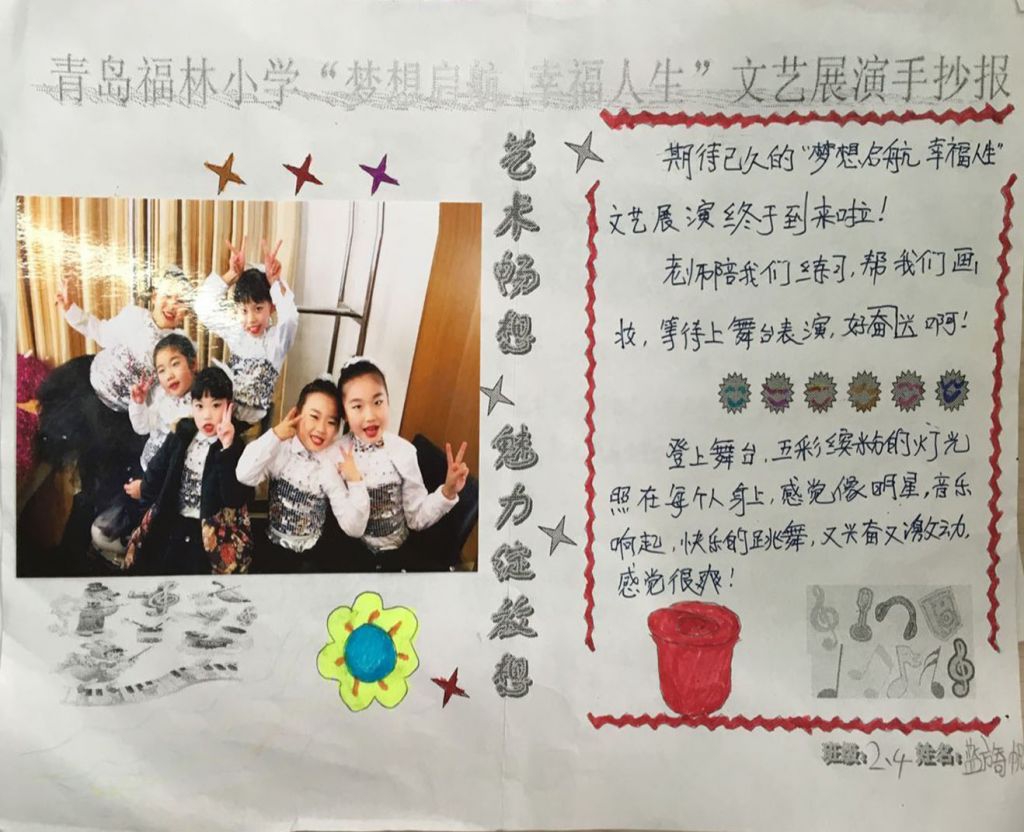 青岛福林小学“梦想启航 幸福人生”文艺展演手抄报
艺术畅想 魅力绽放想
期待已久的“梦想启航 幸福人生”
文艺展演终于到来啦！
老师陪我们练习，帮我们画
妆，等待上舞台表演，好奋迅啊！
登上舞台，五彩缤纷的灯光
照在每个人身上，感觉像明星，音乐
响起，快乐的跳舞，又兴奋又激动，
感觉很爽！
班级：2、4 姓名：